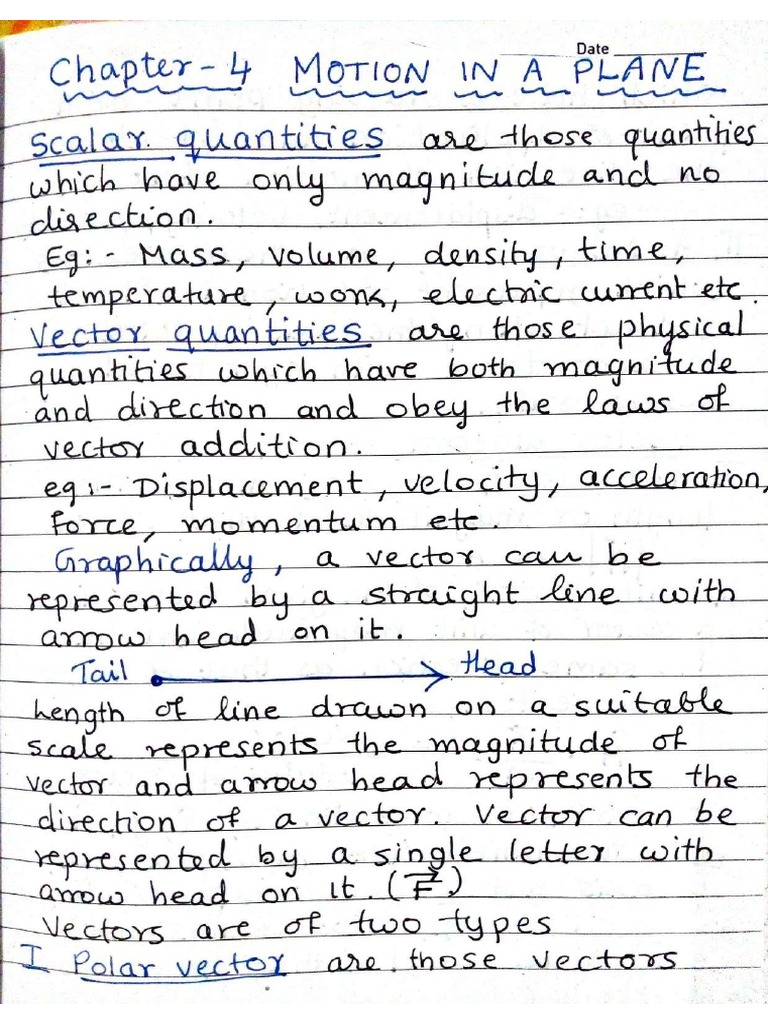 Date
Chapter-4 MOTION IN A PLANE
Scalar quantities are those quantities
which have only magnitude and no
direction.
Eg:- Mass, volume, density, time,
temperature, work, electric current etc.
Vector quantities are those physical
quantities which have both magnitude
and direction and obey the laws of
vector addition.
eg:- Displacement, velocity, acceleration,
force, momentum etc.
Graphically, a vector can be
represented by a straight line with
arrow head on it.
Tail Head
Length of line drawn on a suitable
scale represents the magnitude of
vector and arrow head represents the
direction of a vector. Vector can be
represented by a single letter with
arrow head on it. (F⃗)
Vectors are of two types
I Polar vector are those vectors